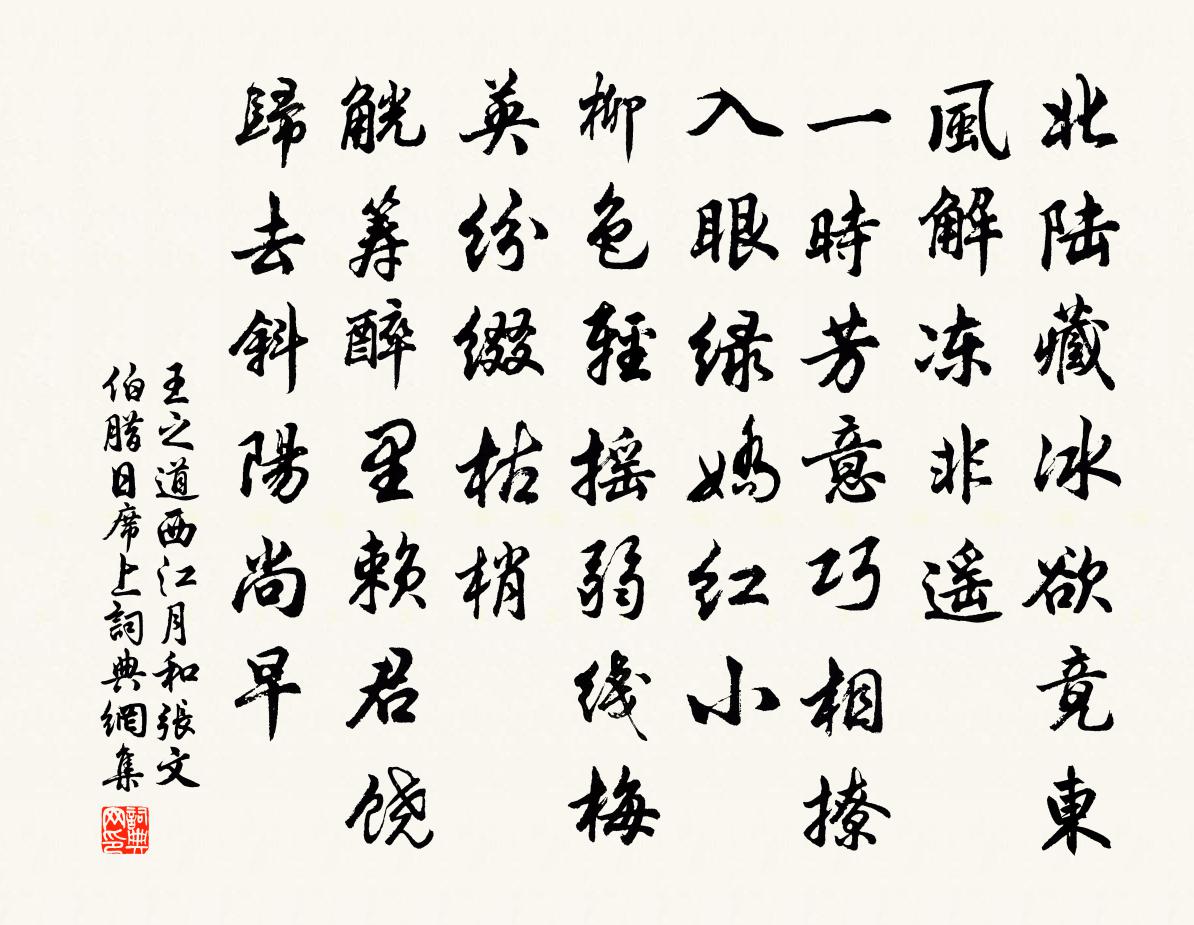 北陆藏冰欲竟東
風解冻非遥
一時芳意巧相撩
入眼绿娇红小
柳色輕摇弱线梅
英纷缀枯梢
觥筹醉里赖君饶
歸去斜陽尚早
王之道西江月和張文
伯腊日席上詞典網集
詞典
网印